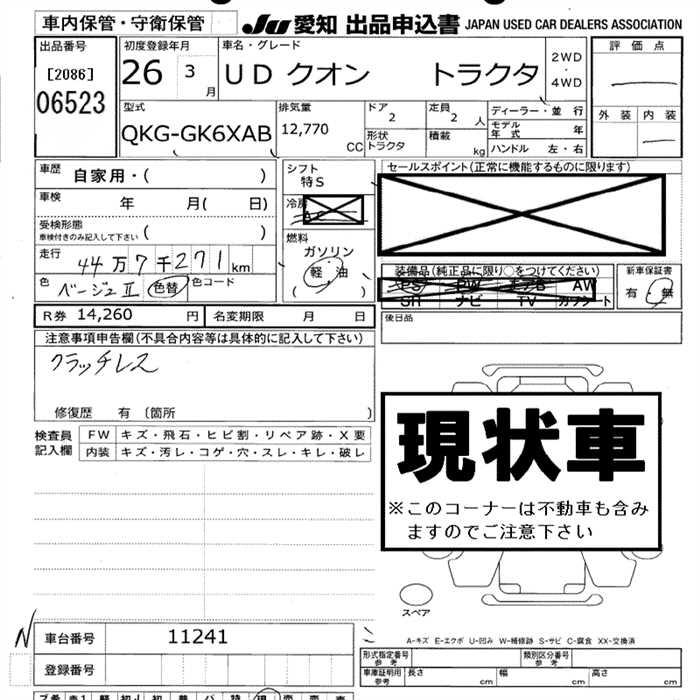 車内保管・守衛保管 JU 愛知 出品申込書 JAPAN USED CAR DEALERS ASSOCIATION
出品番号 初度登録年月 車名・グレード 評価点
[2086] 26 3月 UD クオン トラクタ 2WD・4WD
06523
型式 排気量 ドア 定員 ディーラー・並行 外装 内装
QKG-GK6XAB 12,770 CC 2 2人 モデル年式 年
形状 トラクタ 積載 kg ハンドル 左・右
車歴 自家用・( )
シフト 特S
セールスポイント(正常に機能するものに限ります)
車検 年 月( 日)
冷房 AC
受検形態 ( )
車検付きのみ記入して下さい
燃料 ガソリン
軽・油
( )
走行 44万7千271km
装備品(純正品に限り○をつけてください) 新車保証書
PS PW エアB AW 有・無
SR ナビ TV カワシート
色 ベージュⅡ 色替 色コード
R券 14,260 円 名変期限 月 日
後日品
注意事項申告欄(不具合内容等は具体的に記入して下さい)
クラッチレス
修復歴 有 〔箇所 )
検査員記入欄 FW キズ・飛石・ヒビ割・リペア跡・X要
内装 キズ・汚レ・コゲ・穴・スレ・キレ・破レ
現状車
※このコーナーは不動車も含み
ますのでご注意下さい
スペア
A-キズ E-エクボ U-凹み W-補修跡 S-サビ C-腐食 XX-交換済
N 車台番号 11241
登録番号
形式指定番号 参考 類別区分番号 参考
車庫証明用 参考 長さ cm 幅 cm 高さ cm